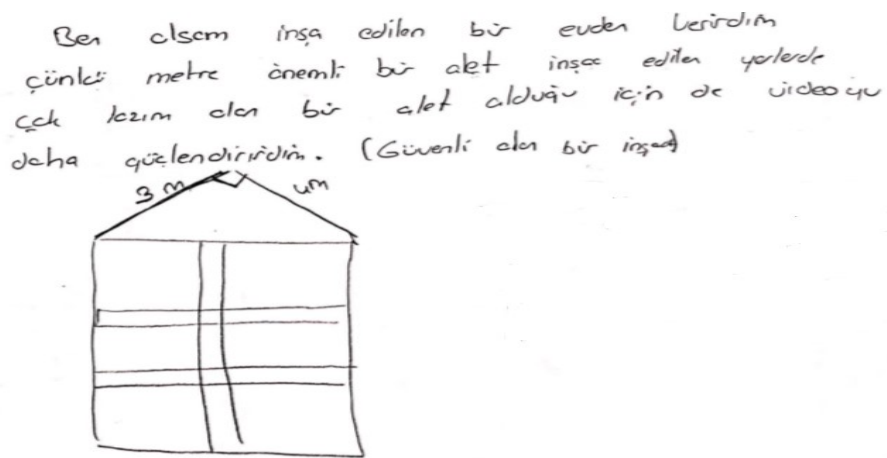 Ben olsam inşa edilen bir evden verirdim
çünkü metre önemli bir alet inşaa edilen yerlerde
çok lazım olan bir alet olduğu için de videoyu
daha güçlendirirdim. (Güvenli olan bir inşaat)
3 m 4m